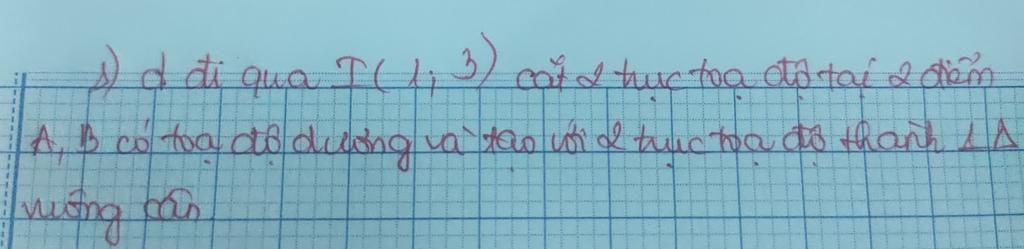 1) d đi qua I(1; 3) cắt 2 trục toạ độ tại 2 điểm
A, B có toạ độ dương và tạo với 2 trục toạ độ thành 1 Δ
vuông cân